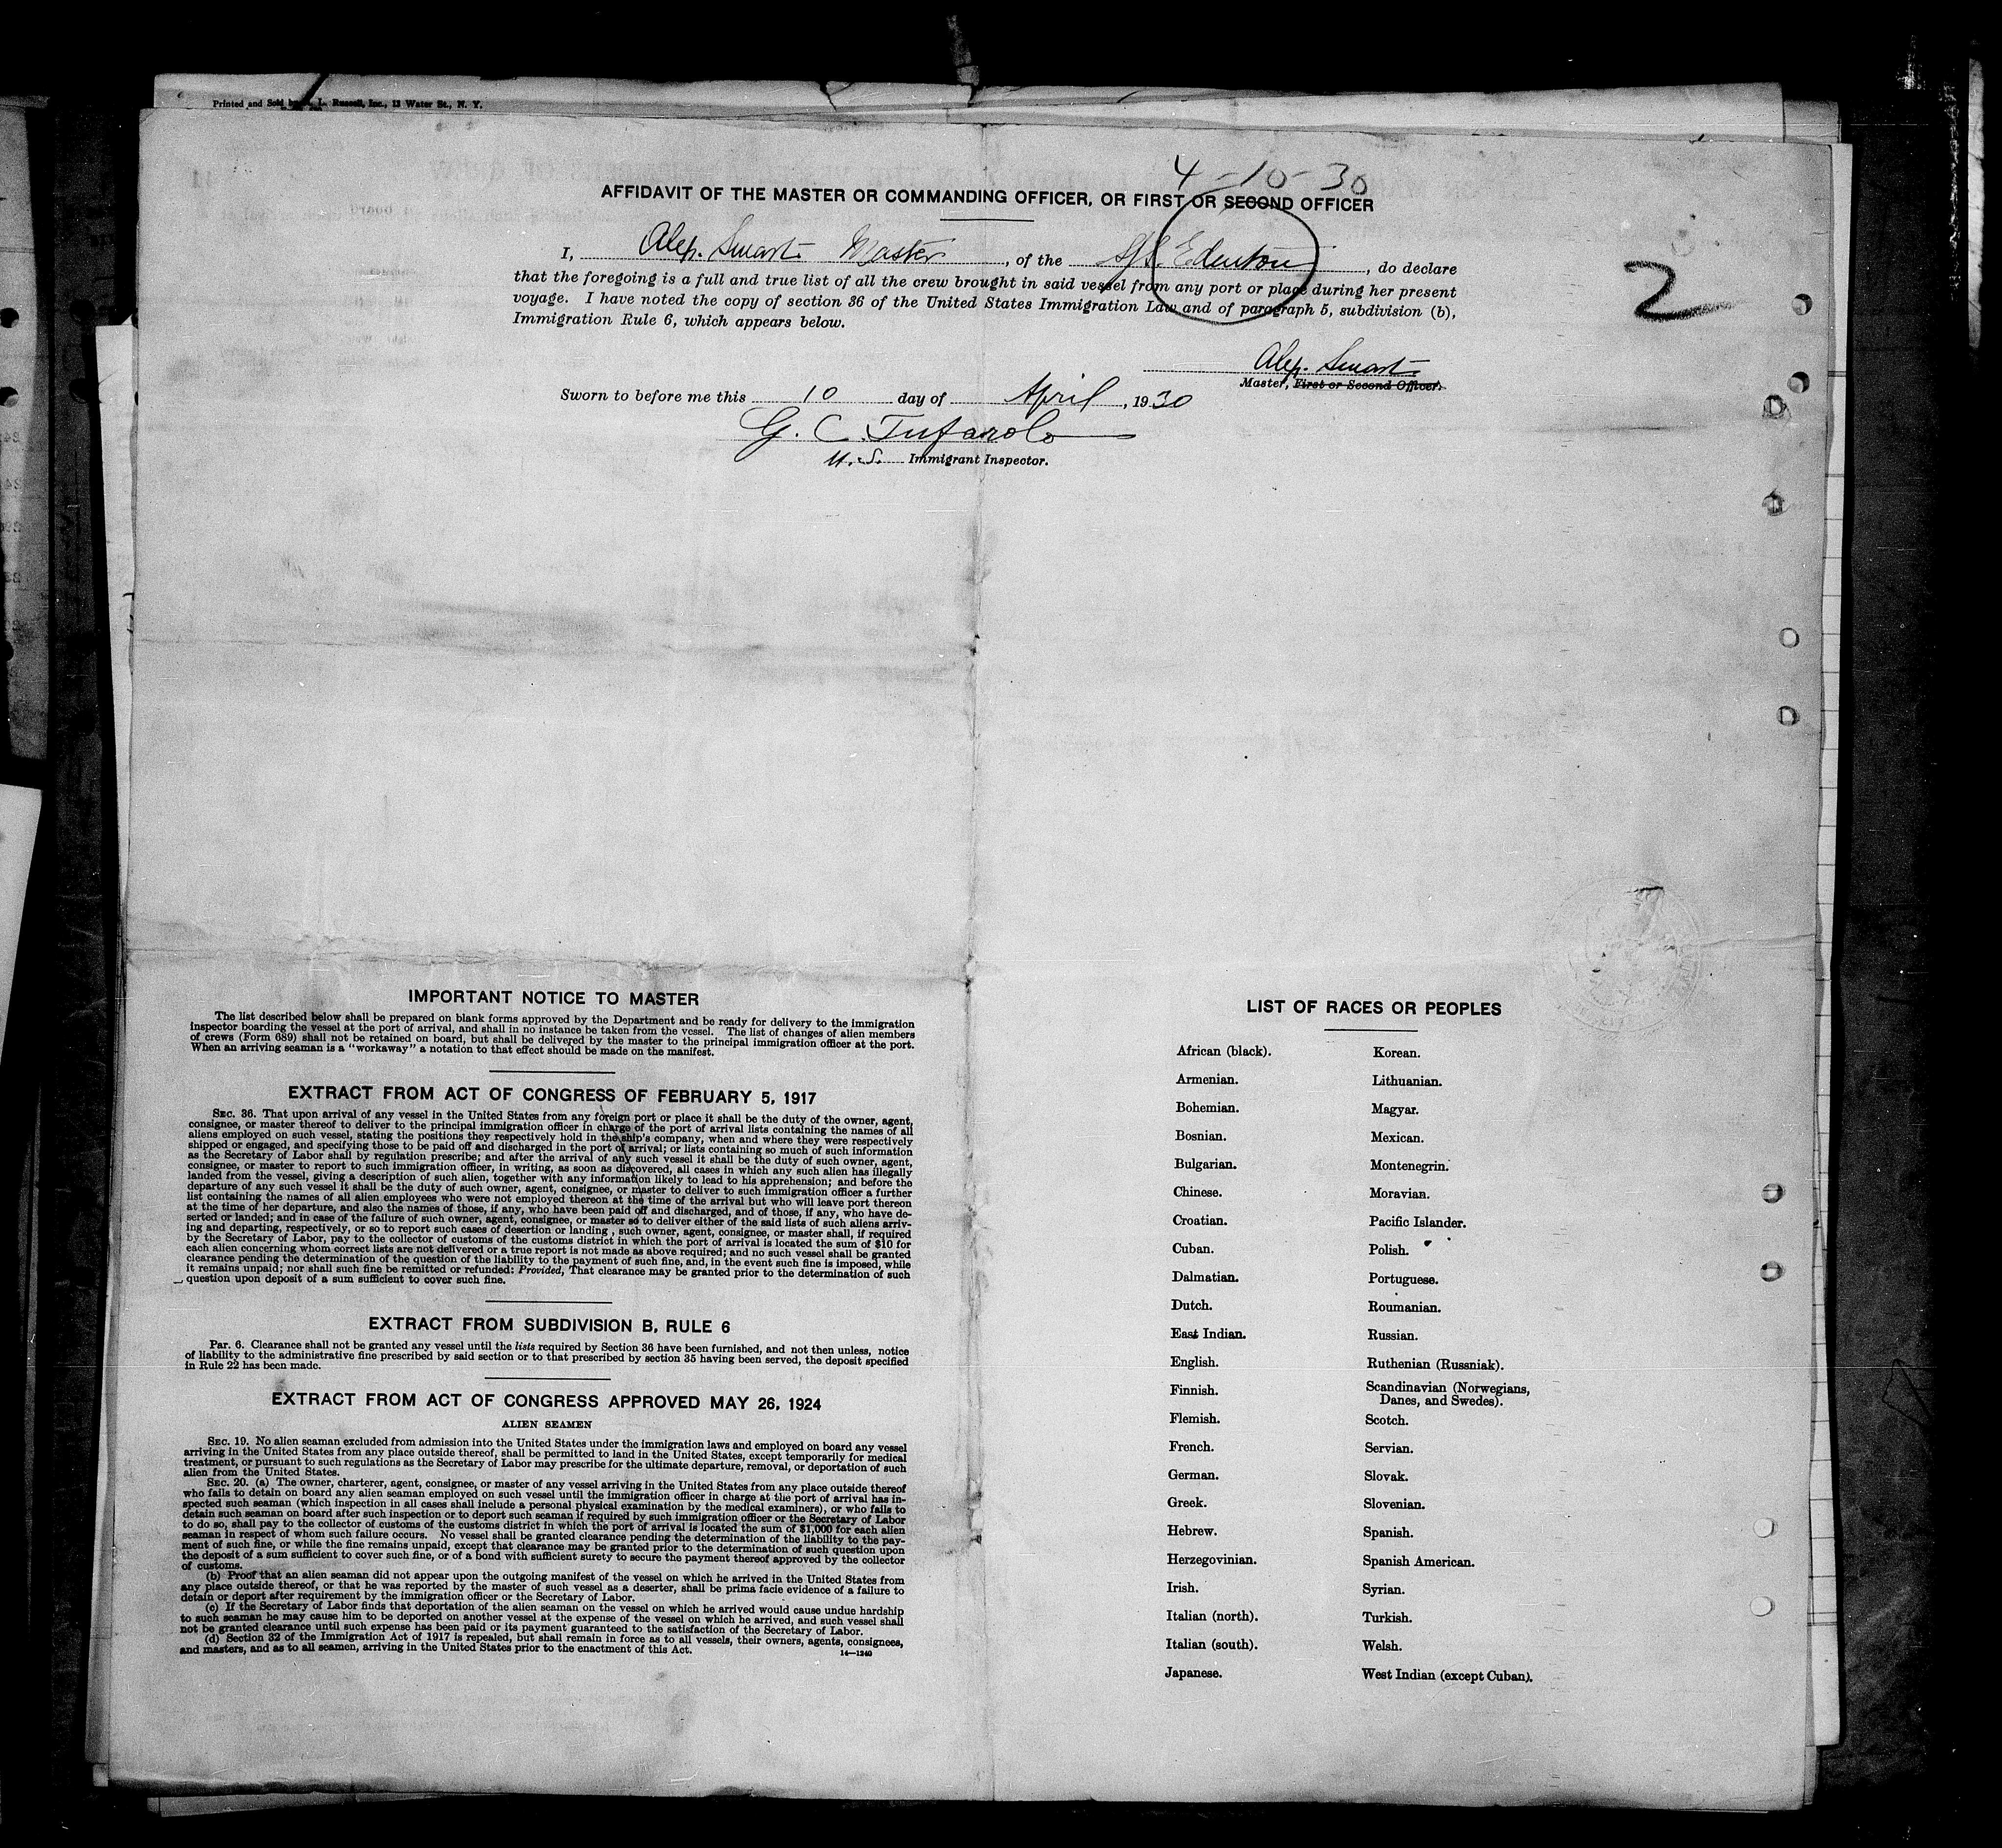 Printed and Sold by L. Russell, Inc., 13 Water St., N. Y.
4-10-30
AFFIDAVIT OF THE MASTER OR COMMANDING OFFICER, OR FIRST OR SECOND OFFICER
I, Alex. Smart Master, of the S/S. Edenton, do declare
that the foregoing is a full and true list of all the crew brought in said vessel from any port or place during her present
voyage. I have noted the copy of section 36 of the United States Immigration Law and of paragraph 5, subdivision (b),
Immigration Rule 6, which appears below.
2
Alex. Smart
Master, First or Second Officer.
Sworn to before me this 10 day of April, 1930
G. C. Tufarolo
U.S. Immigrant Inspector.
IMPORTANT NOTICE TO MASTER
The list described below shall be prepared on blank forms approved by the Department and be ready for delivery to the immigration
inspector boarding the vessel at the port of arrival, and shall in no instance be taken from the vessel. The list of changes of alien members
of crews (Form 689) shall not be retained on board, but shall be delivered by the master to the principal immigration officer at the port.
When an arriving seaman is a "workaway" a notation to that effect should be made on the manifest.
EXTRACT FROM ACT OF CONGRESS OF FEBRUARY 5, 1917
SEC. 36. That upon arrival of any vessel in the United States from any foreign port or place it shall be the duty of the owner, agent,
consignee, or master thereof to deliver to the principal immigration officer in charge of the port of arrival lists containing the names of all
aliens employed on such vessel, stating the positions they respectively hold in the ship's company, when and where they were respectively
shipped or engaged, and specifying those to be paid off and discharged in the port of arrival; or lists containing so much of such information
as the Secretary of Labor shall by regulation prescribe; and after the arrival of any such vessel it shall be the duty of such owner, agent,
consignee, or master to report to such immigration officer, in writing, as soon as discovered, all cases in which any such alien has illegally
landed from the vessel, giving a description of such alien, together with any information likely to lead to his apprehension; and before the
departure of any such vessel it shall be the duty of such owner, agent, consignee, or master to deliver to such immigration officer a further
list containing the names of all alien employees who were not employed thereon at the time of the arrival but who will leave port thereon
at the time of her departure, and also the names of those, if any, who have been paid off and discharged, and of those, if any, who have de-
serted or landed; and in case of the failure of such owner, agent, consignee, or master so to deliver either of the said lists of such aliens arriv-
ing and departing, respectively, or so to report such cases of desertion or landing , such owner, agent, consignee, or master shall, if required
by the Secretary of Labor, pay to the collector of customs of the customs district in which the port of arrival is located the sum of $10 for
each alien concerning whom correct lists are not delivered or a true report is not made as above required; and no such vessel shall be granted
clearance pending the determination of the question of the liability to the payment of such fine, and, in the event such fine is imposed, while
it remains unpaid; nor shall such fine be remitted or refunded: Provided, That clearance may be granted prior to the determination of such
question upon deposit of a sum sufficient to cover such fine.
EXTRACT FROM SUBDIVISION B, RULE 6
Par. 6. Clearance shall not be granted any vessel until the lists required by Section 36 have been furnished, and not then unless, notice
of liability to the administrative fine prescribed by said section or to that prescribed by section 35 having been served, the deposit specified
in Rule 22 has been made.
EXTRACT FROM ACT OF CONGRESS APPROVED MAY 26, 1924
ALIEN SEAMEN
SEC. 19. No alien seaman excluded from admission into the United States under the immigration laws and employed on board any vessel
arriving in the United States from any place outside thereof, shall be permitted to land in the United States, except temporarily for medical
treatment, or pursuant to such regulations as the Secretary of Labor may prescribe for the ultimate departure, removal, or deportation of such
alien from the United States.
SEC. 20. (a) The owner, charterer, agent, consignee, or master of any vessel arriving in the United States from any place outside thereof
who fails to detain on board any alien seaman employed on such vessel until the immigration officer in charge at the port of arrival has in-
spected such seaman (which inspection in all cases shall include a personal physical examination by the medical examiners), or who fails to
detain such seaman on board after such inspection or to deport such seaman if required by such immigration officer or the Secretary of Labor
to do so, shall pay to the collector of customs of the customs district in which the port of arrival is located the sum of $1,000 for each alien
seaman in respect of whom such failure occurs. No vessel shall be granted clearance pending the determination of the liability to the pay-
ment of such fine, or while the fine remains unpaid, except that clearance may be granted prior to the determination of such question upon
the deposit of a sum sufficient to cover such fine, or of a bond with sufficient surety to secure the payment thereof approved by the collector
of customs.
(b) Proof that an alien seaman did not appear upon the outgoing manifest of the vessel on which he arrived in the United States from
any place outside thereof, or that he was reported by the master of such vessel as a deserter, shall be prima facie evidence of a failure to
detain or deport after requirement by the immigration officer or the Secretary of Labor.
(c) If the Secretary of Labor finds that deportation of the alien seaman on the vessel on which he arrived would cause undue hardship
to such seaman he may cause him to be deported on another vessel at the expense of the vessel on which he arrived, and such vessel shall
not be granted clearance until such expense has been paid or its payment guaranteed to the satisfaction of the Secretary of Labor.
(d) Section 32 of the Immigration Act of 1917 is repealed, but shall remain in force as to all vessels, their owners, agents, consignees,
and masters, and as to all seamen, arriving in the United States prior to the enactment of this Act.
14—1240
LIST OF RACES OR PEOPLES
African (black).
Armenian.
Bohemian.
Bosnian.
Bulgarian.
Chinese.
Croatian.
Cuban.
Dalmatian.
Dutch.
East Indian.
English.
Finnish.
Flemish.
French.
German.
Greek.
Hebrew.
Herzegovinian.
Irish.
Italian (north).
Italian (south).
Japanese.
Korean.
Lithuanian.
Magyar.
Mexican.
Montenegrin.
Moravian.
Pacific Islander.
Polish.
Portuguese.
Roumanian.
Russian.
Ruthenian (Russniak).
Scandinavian (Norwegians,
Danes, and Swedes).
Scotch.
Servian.
Slovak.
Slovenian.
Spanish.
Spanish American.
Syrian.
Turkish.
Welsh.
West Indian (except Cuban).